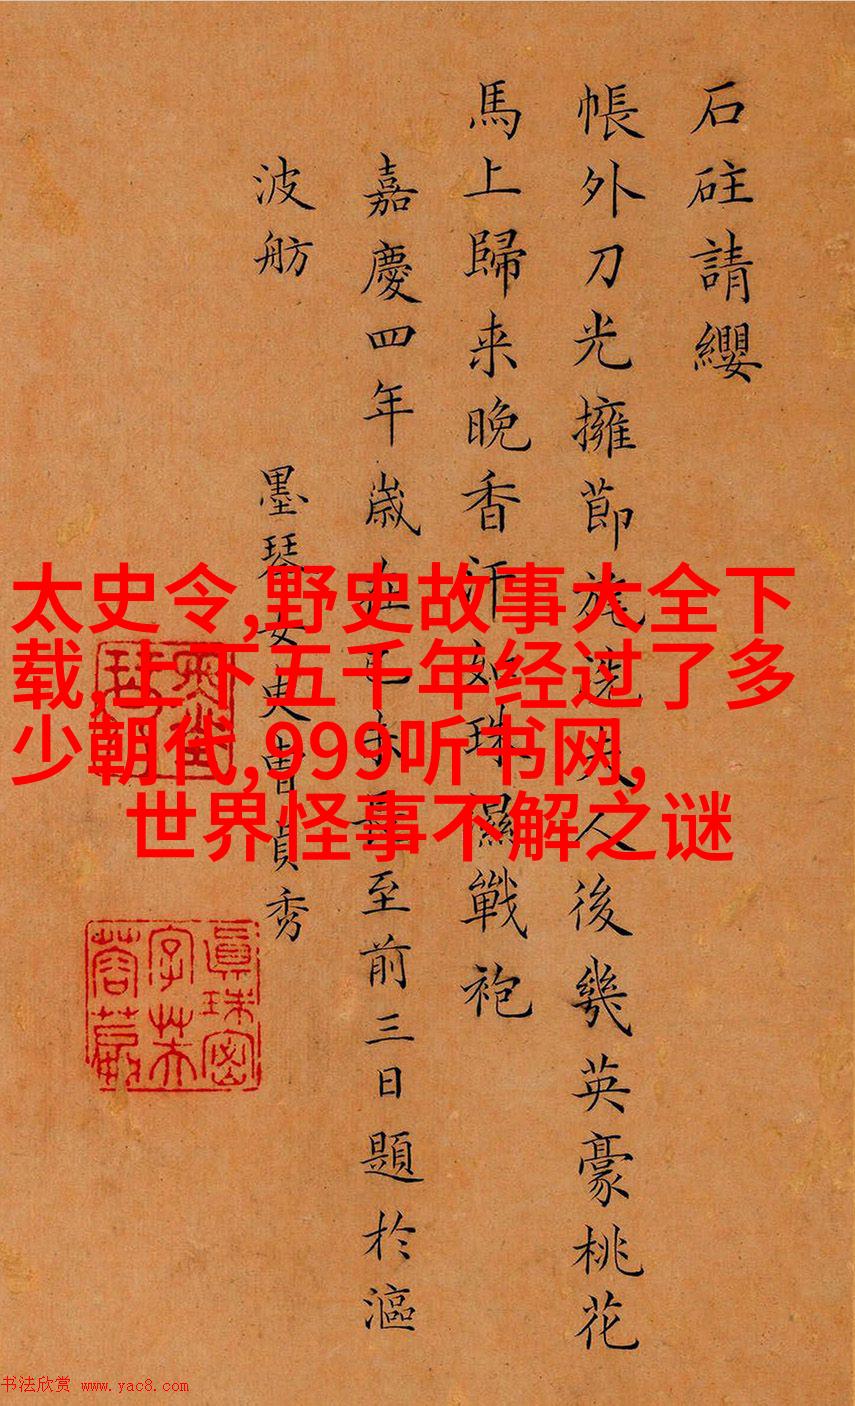 石砫請纓
帳外刀光擁節旄洗夫人後幾英豪桃花
馬上歸来晚香汗如珠濕戰袍
嘉慶四年歲在己未長至前三日題於漚
波舫 墨琴女史曹貞秀
眞珠密
字
蓉
太史令,野史故事大全下
载,上下五千年经过了多
少朝代,999听书网,
世界怪事不解之谜
书法欣赏 www.yac8.com